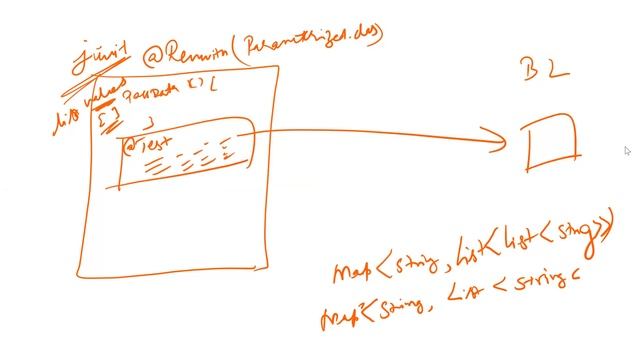 junit @Runwith(Parameterized.class)
list values
{ }
@Test
BL
Map<String, List<List<String>>
Map<String, List<String<